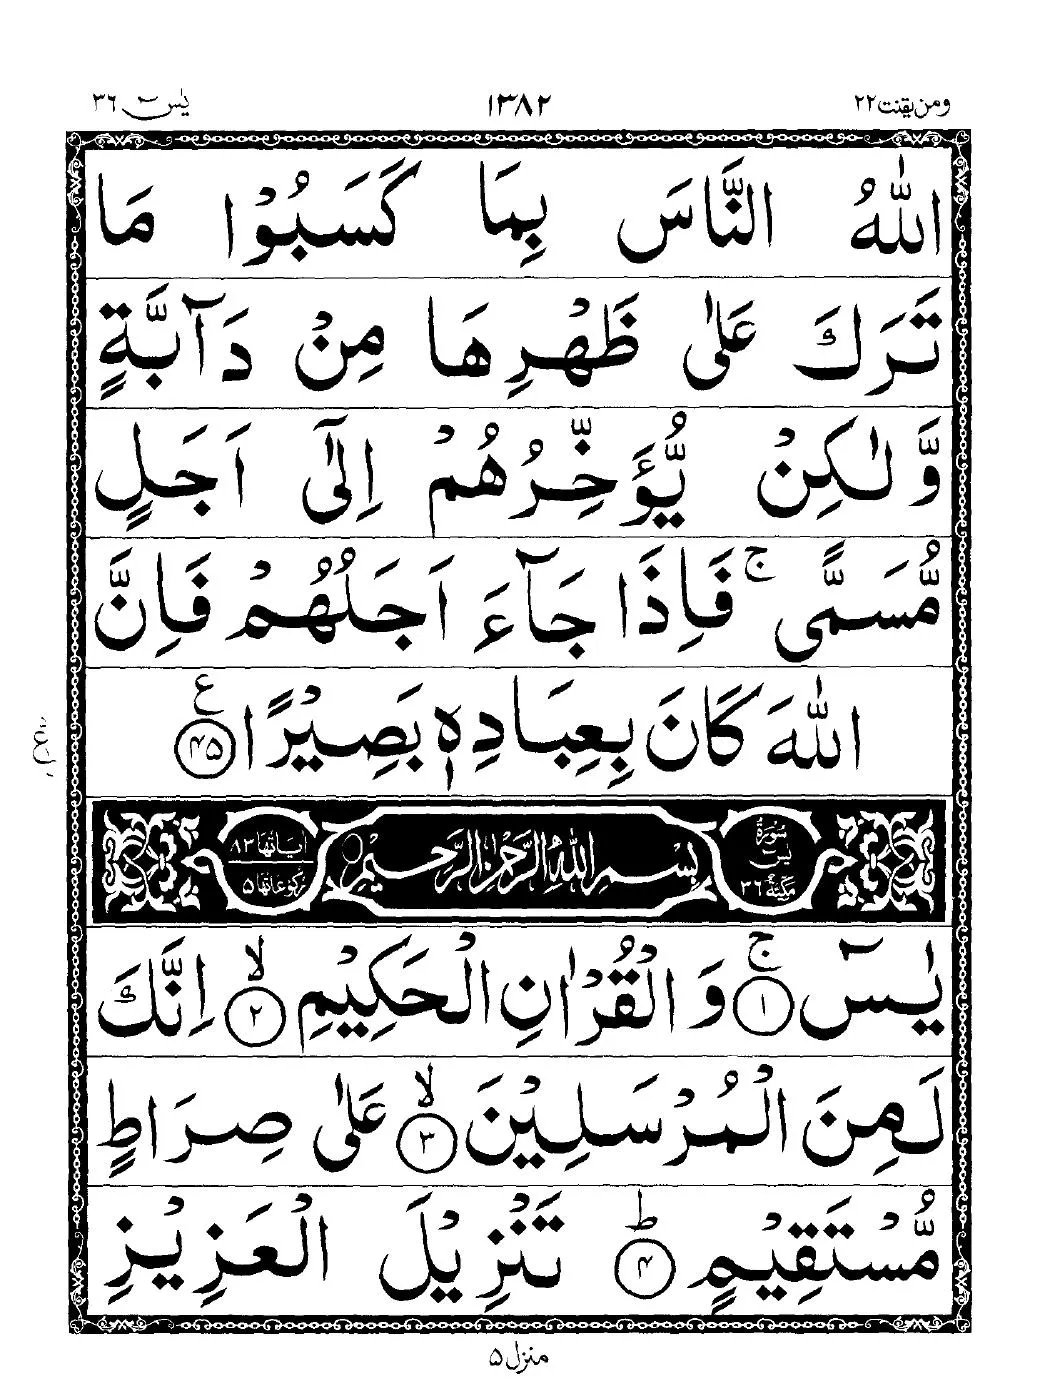 ومن يقنت ٢٢
١٣٨٢
يٰسٓ ٣٦
اللّٰهُ النَّاسَ بِمَا كَسَبُوْا مَا
تَرَكَ عَلٰى ظَهْرِهَا مِنْ دَآبَّةٍ
وَّلٰكِنْ يُّؤَخِّرُهُمْ اِلٰٓى اَجَلٍ
مُّسَمًّى ۚ فَاِذَا جَآءَ اَجَلُهُمْ فَاِنَّ
اللّٰهَ كَانَ بِعِبَادِهٖ بَصِيْرًا ۴۵ ع
سُوْرَةُ يٰسٓ مَكِّيَّةٌ ٣٦
بِسْمِ اللّٰهِ الرَّحْمٰنِ الرَّحِيْمِ
اٰيَاتُهَا ٨٣
رُكُوْعَاتُهَا ۵
يٰسٓ ۚ ١ وَالْقُرْاٰنِ الْحَكِيْمِ ۙ ٢ اِنَّكَ
لَمِنَ الْمُرْسَلِيْنَ ۙ ٣ عَلٰى صِرَاطٍ
مُّسْتَقِيْمٍ ؕ ۴ تَنْزِيْلَ الْعَزِيْزِ
منزل ۵